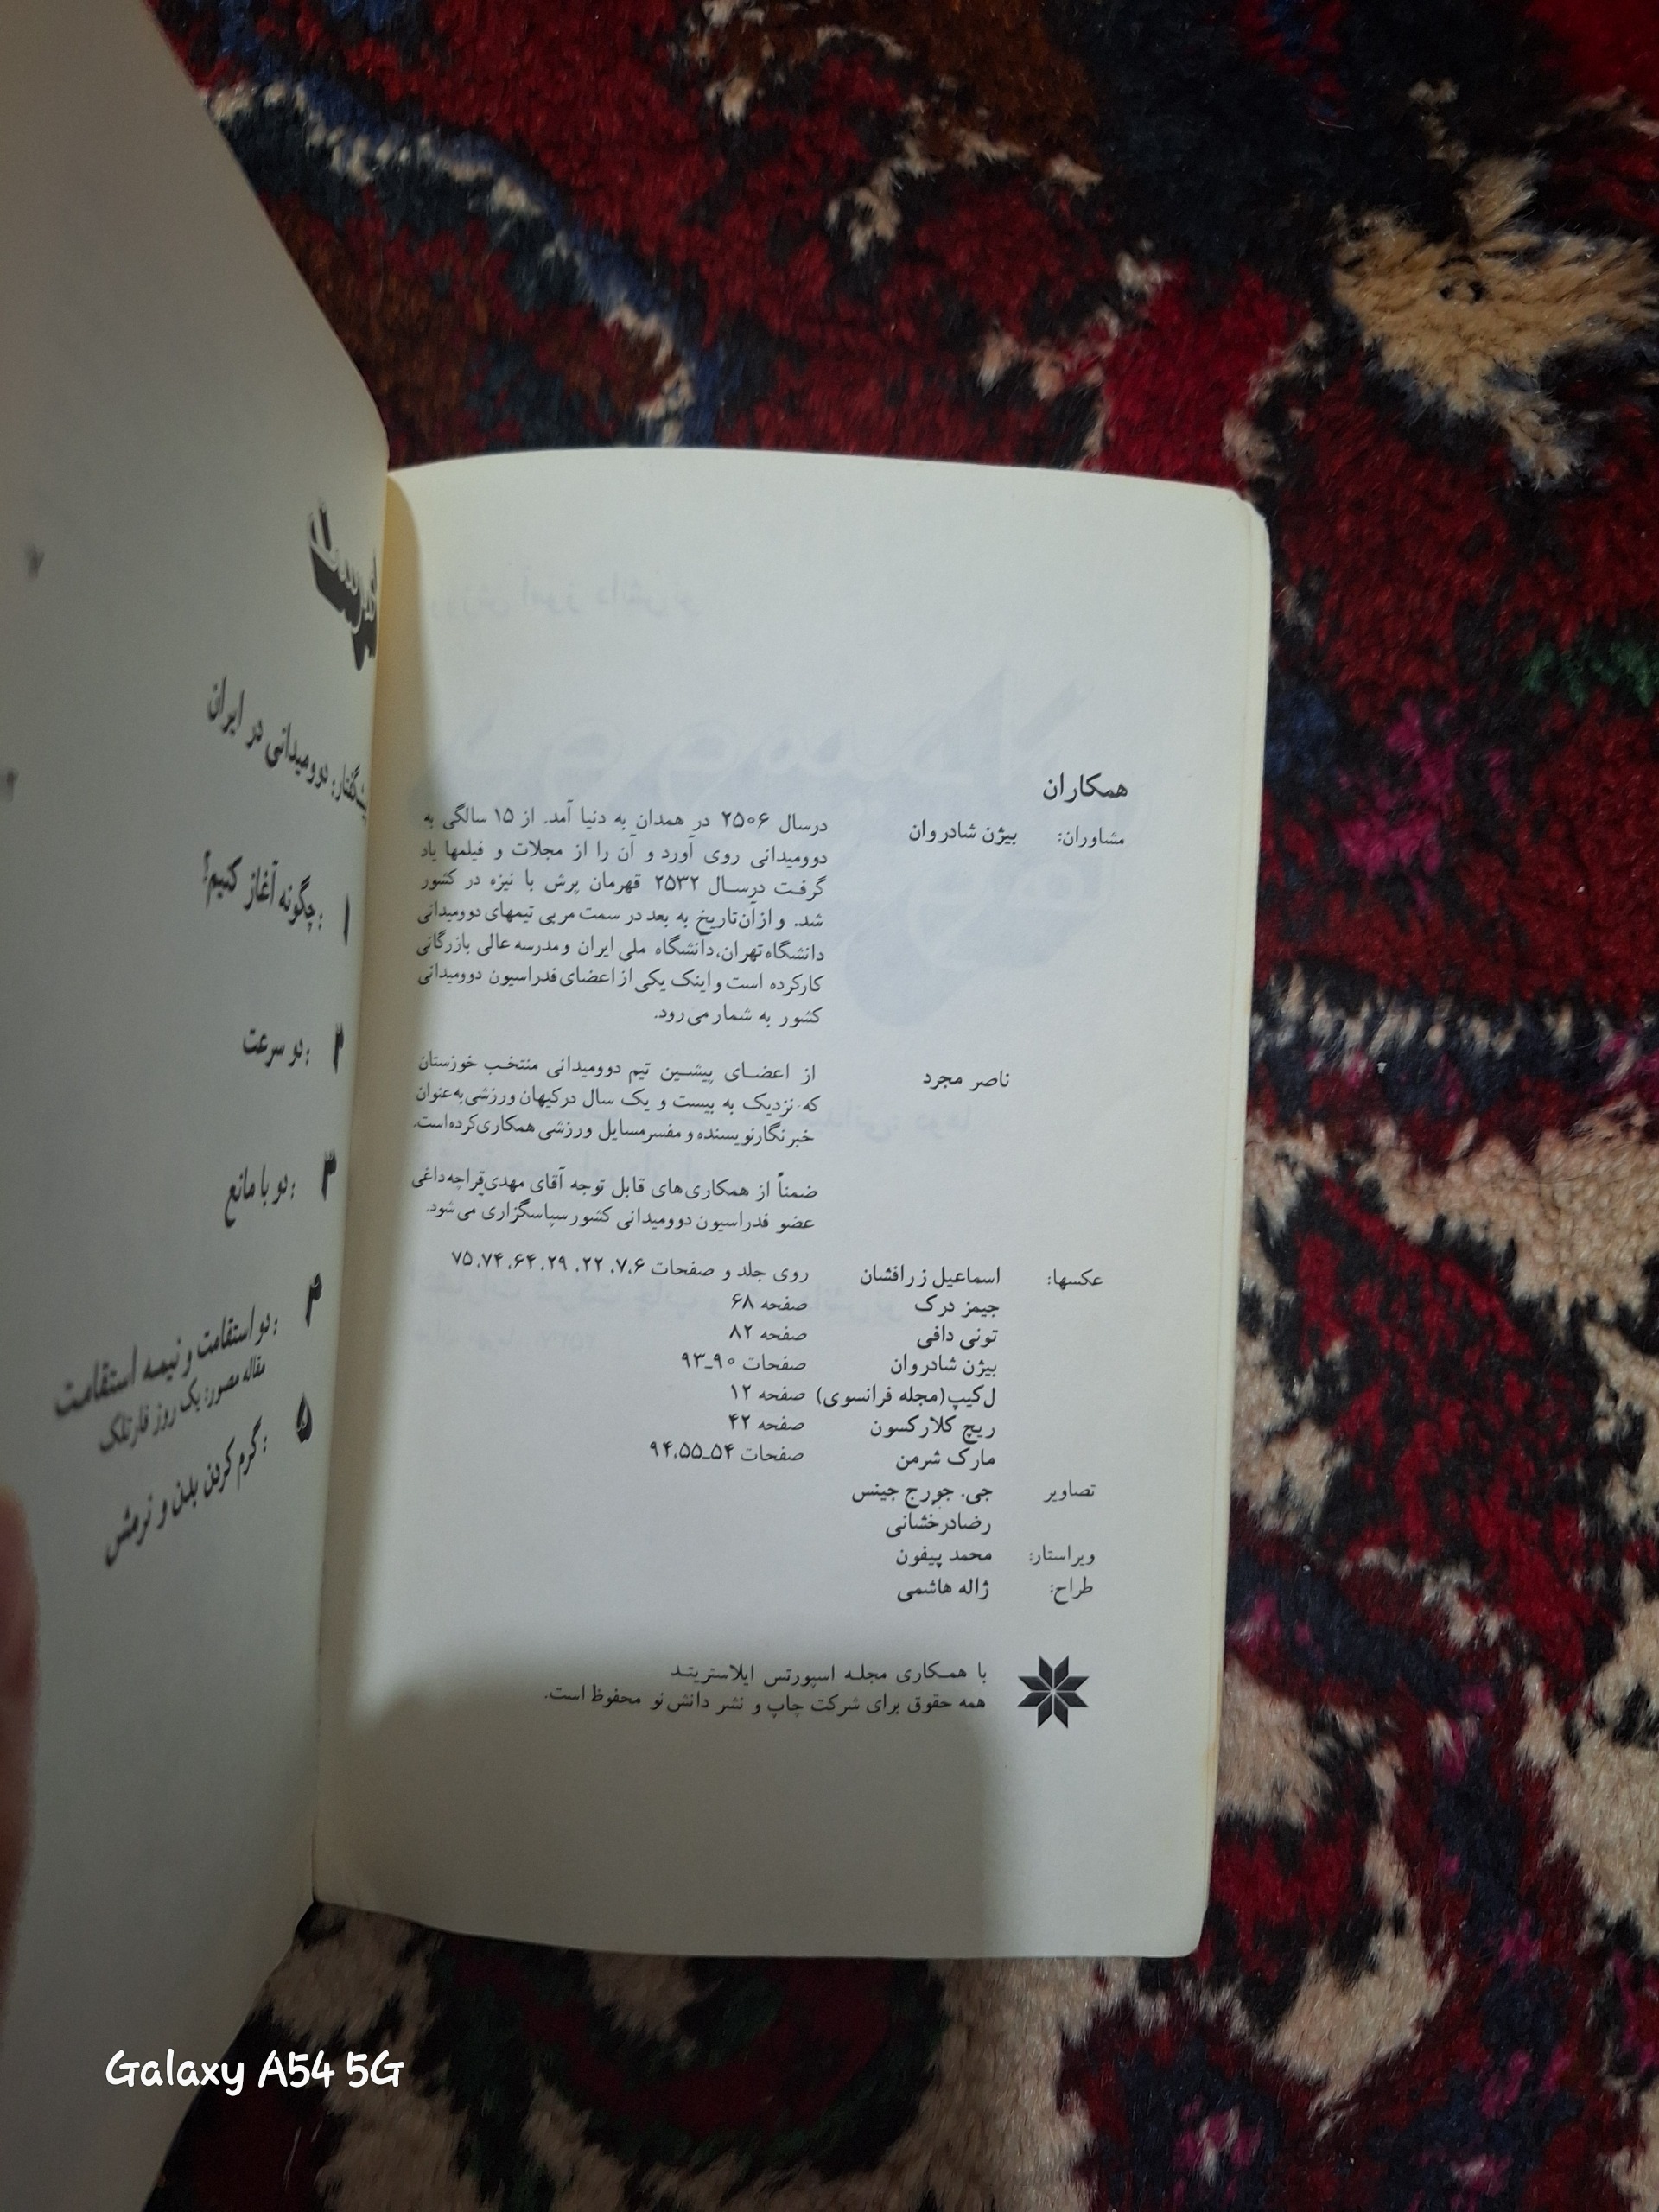 همکاران
مشاوران: بیژن شادروان
درسال ۲۵۰۶ در همدان به دنیا آمد. از ۱۵ سالگی به
دوومیدانی روی آورد و آن را از مجلات و فیلمها یاد
گرفت درسال ۲۵۳۲ قهرمان پرش با نیزه در کشور
شد. و ازآن‌تاریخ به بعد در سمت مربی تیمهای دوومیدانی
دانشگاه تهران، دانشگاه ملی ایران و مدرسه عالی بازرگانی
کارکرده است و اینک یکی از اعضای فدراسیون دوومیدانی
کشور به شمار می‌رود.
ناصر مجرد
از اعضای پیشین تیم دوومیدانی منتخب خوزستان
که نزدیک به بیست و یک سال درکیهان ورزشی به عنوان
خبرنگارنویسنده و مفسرمسایل ورزشی همکاری‌کرده‌است.
ضمناً از همکاری‌های قابل توجه آقای مهدی‌قراچه‌داغی
عضو فدراسیون دوومیدانی کشور سپاسگزاری می‌شود.
عکسها: اسماعیل زرافشان روی جلد و صفحات ۷،۶، ۲۲، ۲۹، ۶۴، ۷۵،۷۴
جیمز درک صفحه ۶۸
تونی دافی صفحه ۸۲
بیژن شادروان صفحات ۹۰ـ۹۳
ل‌کیپ (مجله فرانسوی) صفحه ۱۲
ریچ کلارکسون صفحه ۴۲
مارک شرمن صفحات ۵۴ـ۹۴،۵۵
تصاویر جی. جورج جینس
رضادرخشانی
ویراستار: محمد پیفون
طراح: ژاله هاشمی
با همکاری مجله اسپورتس ایلاستریتد
همه حقوق برای شرکت چاپ و نشر دانش نو محفوظ است.
دوومیدانی در ایران
۱ : چگونه آغاز کنیم؟
۲ : دو سرعت
۳ : دو با مانع
۴ : دو استقامت و نیمه استقامت
مقاله مصور: یک روز فارتلک
۵ : گرم کردن بدن و نرمش
Galaxy A54 5G